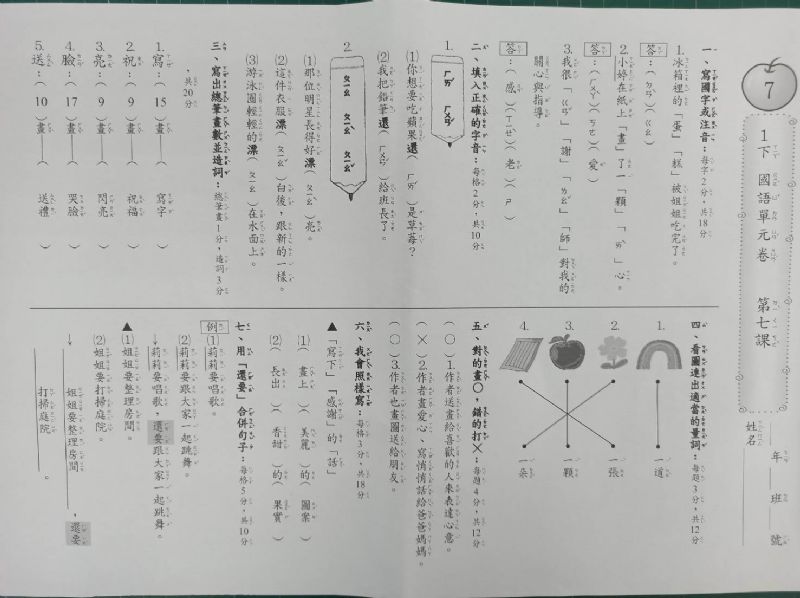 7
1下 國語單元卷 第七課
年 班 號
姓名
一、寫國字或注音：每字2分，共18分
1.冰箱裡的「蛋」「糕」被姐姐吃完了。
答：(ㄉㄢˋ)(ㄍㄠ)
2.小婷在紙上「畫」了一「顆」「ㄞˋ」心。
答：(ㄏㄨㄚˋ)(ㄎㄜ)(愛)
3.我很「ㄍㄢˇ」「謝」「ㄌㄠˇ」「師」對我的
關心與指導。
答：(感)(ㄒㄧㄝˋ)(老)(ㄕ)
二、填入正確的字音：每格2分，共10分
1. ㄏㄞˊ ㄏㄨㄢˊ
(1)你想要吃蘋果還(ㄏㄞˊ)是草莓？
(2)我把鉛筆還(ㄏㄨㄢˊ)給班長了。
2. ㄆㄧㄠ ㄆㄧㄠˇ ㄆㄧㄠˋ
(1)那位明星長得好漂(ㄆㄧㄠˋ)亮。
(2)這件衣服漂(ㄆㄧㄠˇ)白後，跟新的一樣。
(3)游泳圈輕輕的漂(ㄆㄧㄠ)在水面上。
三、寫出總筆畫數並造詞：總筆畫1分，造詞3分
，共20分
1.寫：(15)畫——(寫字)
2.祝：(9)畫——(祝福)
3.亮：(9)畫——(閃亮)
4.臉：(17)畫——(哭臉)
5.送：(10)畫——(送禮)
四、看圖連出適當的量詞：每題3分，共12分
1. 一道
2. 一張
3. 一顆
4. 一朵
五、對的畫○，錯的打✕：每題4分，共12分
(○)1.作者送畫給喜歡的人來表達心意。
(✕)2.作者畫愛心、寫悄悄話給爸爸媽媽。
(○)3.作者也畫圖送給朋友。
六、我會照樣寫：每格3分，共18分
▲「寫下」「感謝」的「話」
(1)(畫上)(美麗)的(圖案)
(2)(長出)(香甜)的(果實)
七、用「還要」合併句子：每格5分，共10分
例(1)莉莉要唱歌。
(2)莉莉要跟大家一起跳舞。
→莉莉要唱歌，還要跟大家一起跳舞。
▲(1)姐姐要整理房間。
(2)姐姐要打掃庭院。
→姐姐要整理房間，還要
打掃庭院。